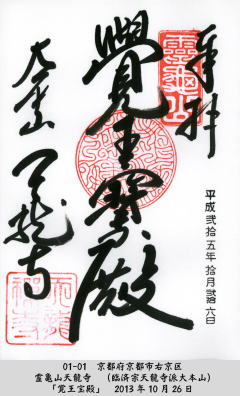 奉拝
霊亀山
覺王寳殿
大本山
天龍寺
平成弐拾五年拾月弐拾六日
01-01　京都府京都市右京区
霊亀山天龍寺　（臨済宗天龍寺派大本山）
「覚王宝殿」　2013年10月26日